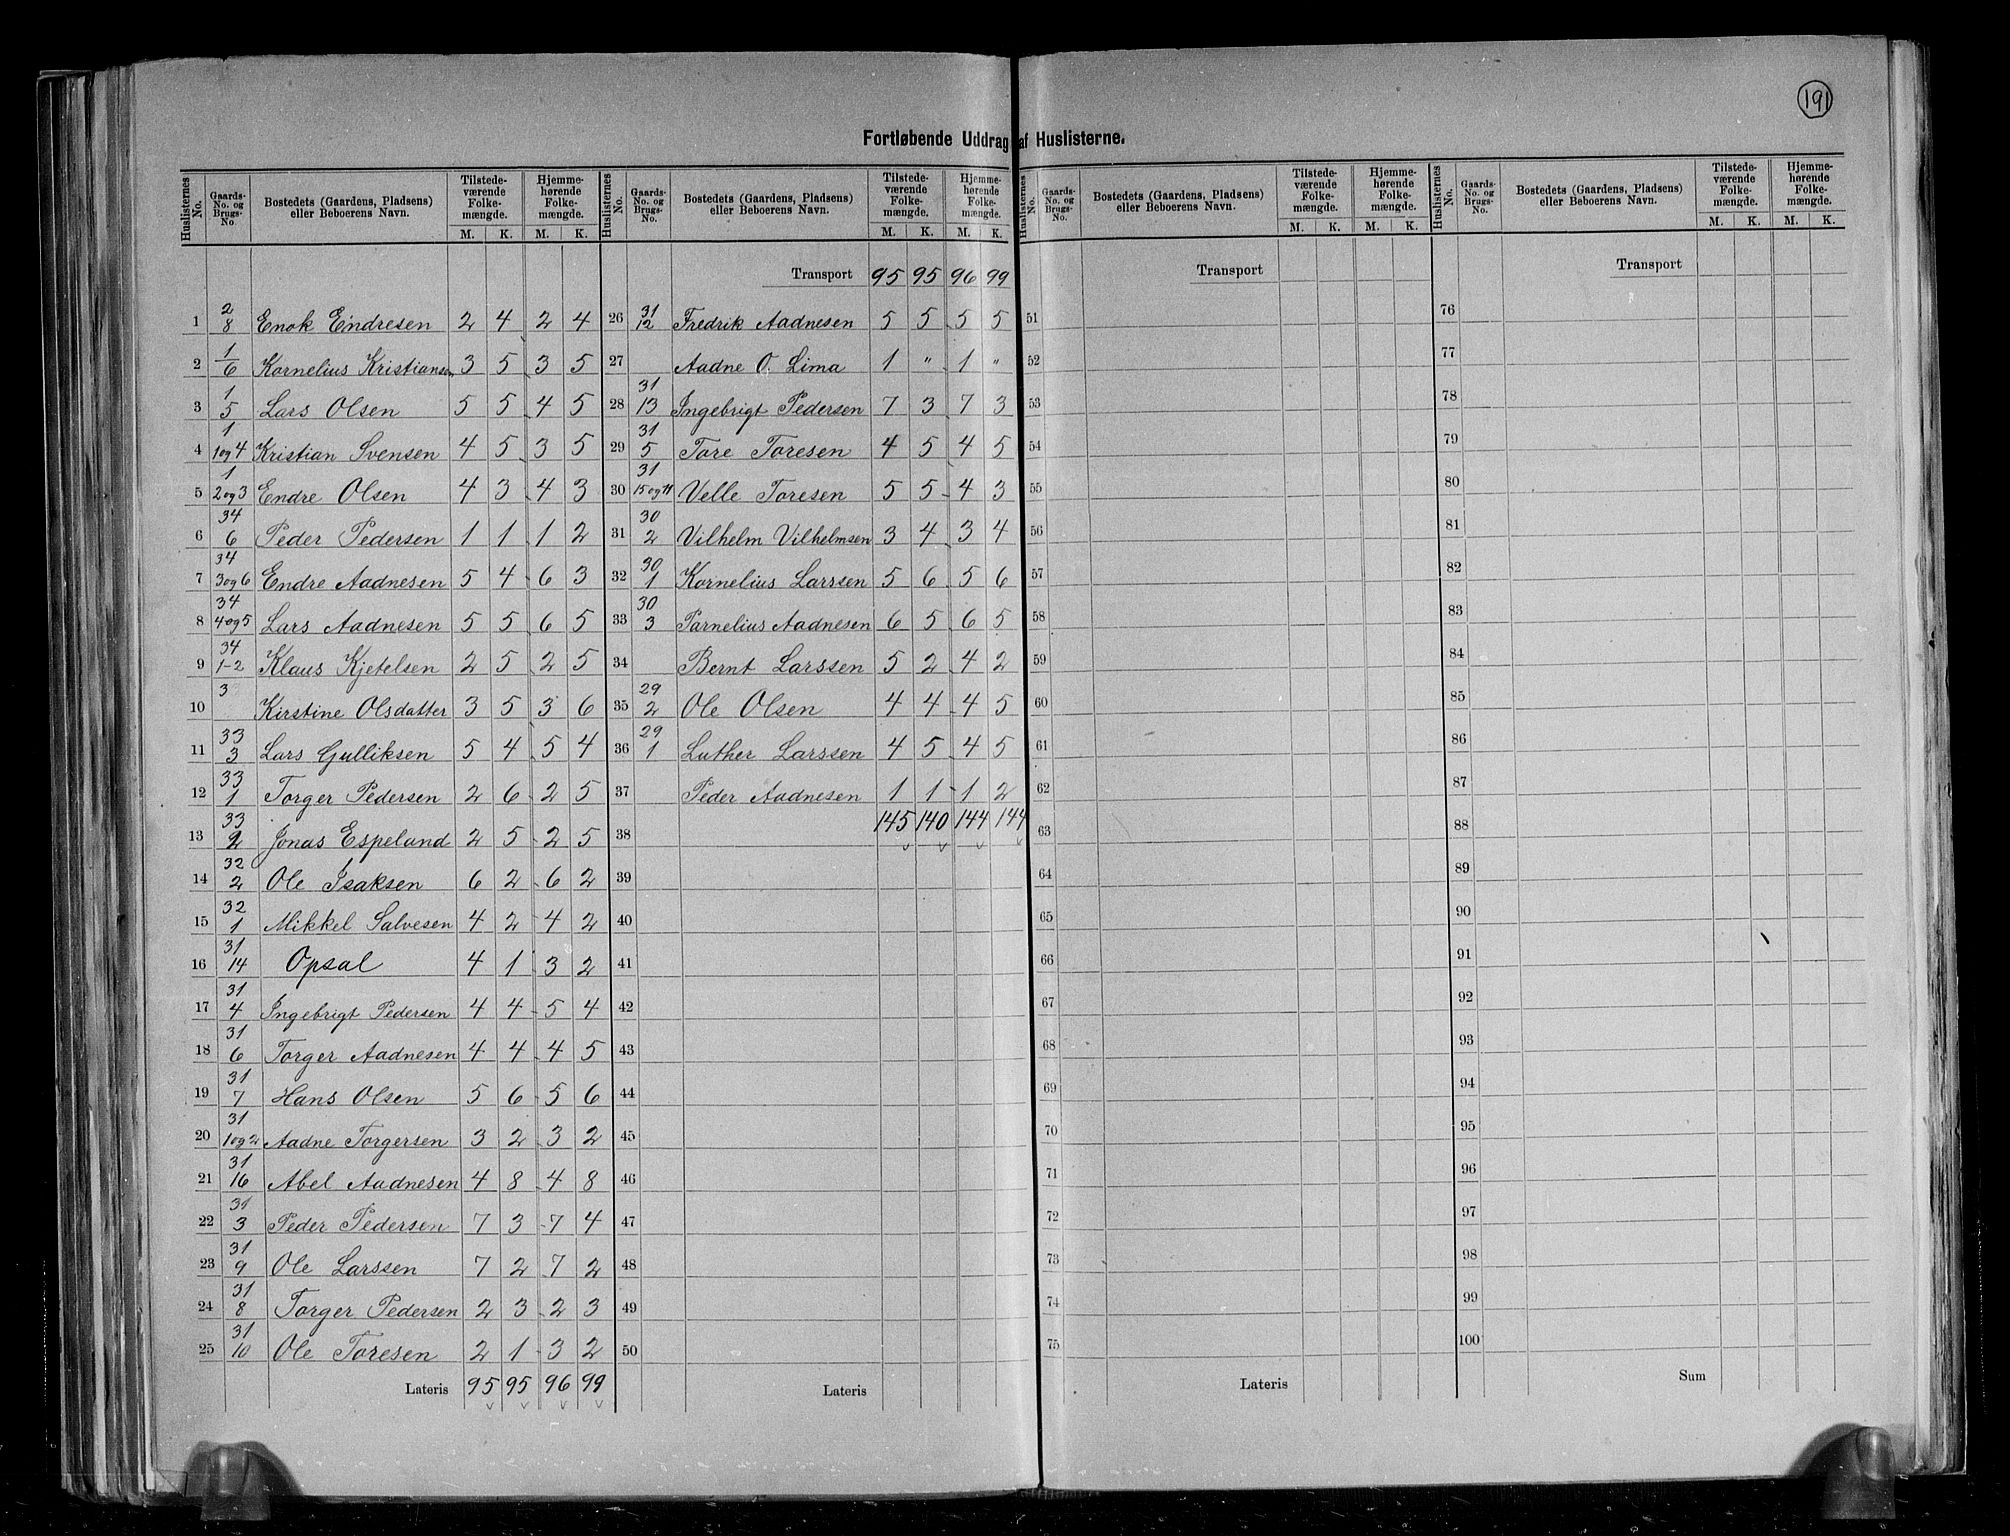 191
Fortløbende Uddrag af Huslisterne.
Huslisternes No. | Gaards-No. og Brugs-No. | Bostedets (Gaardens, Pladsens) eller Beboerens Navn. | Tilstedeværende Folkemængde. M. K. | Hjemmehørende Folkemængde. M. K.
1 2/8 Enok Endresen 2 4 2 4
2 1/6 Kornelius Kristiansen 3 5 3 5
3 1/5 Lars Olsen 5 5 4 5
4 1/1og4 Kristian Svensen 4 5 3 5
5 1/2og3 Endre Olsen 4 3 4 3
6 34/6 Peder Pedersen 1 1 1 2
7 34/3og6 Endre Aadnesen 5 4 6 3
8 34/4og5 Lars Aadnesen 5 5 6 5
9 34/1-2 Klaus Kjetelsen 2 5 2 5
10 3 Kirstine Olsdatter 3 5 3 6
11 33/3 Lars Gulliksen 5 4 5 4
12 33/1 Torger Pedersen 2 6 2 5
13 33/2 Jonas Espeland 2 5 2 5
14 32/2 Ole Isaksen 6 2 6 2
15 32/1 Mikkel Salvesen 4 2 4 2
16 31/14 Opsal 4 1 3 2
17 31/4 Ingebrigt Pedersen 4 4 5 4
18 31/6 Torger Aadnesen 4 4 4 5
19 31/7 Hans Olsen 5 6 5 6
20 31/1og2 Aadne Torgersen 3 2 3 2
21 31/16 Abel Aadnesen 4 8 4 8
22 31/3 Peder Pedersen 7 3 7 4
23 31/9 Ole Larssen 7 2 7 2
24 31/8 Torger Pedersen 2 3 2 3
25 31/10 Ole Toresen 2 1 3 2
Lateris 95 95 96 99
Huslisternes No. | Gaards-No. og Brugs-No. | Bostedets (Gaardens, Pladsens) eller Beboerens Navn. | Tilstedeværende Folkemængde. M. K. | Hjemmehørende Folkemængde. M. K.
Transport 95 95 96 99
26 31/12 Fredrik Aadnesen 5 5 5 5
27 Aadne O. Lima 1 " 1 "
28 31/13 Ingebrigt Pedersen 7 3 7 3
29 31/5 Tore Toresen 4 5 4 5
30 31/15og11 Velle Toresen 5 5 4 3
31 30/2 Vilhelm Vilhelmsen 3 4 3 4
32 30/1 Kornelius Larssen 5 6 5 6
33 30/3 Parnelius Aadnesen 6 5 6 5
34 Bernt Larssen 5 2 4 2
35 29/2 Ole Olsen 4 4 4 5
36 29/1 Luther Larssen 4 5 4 5
37 Peder Aadnesen 1 1 1 2
38 145 140 144 144
39
40
41
42
43
44
45
46
47
48
49
50
Lateris
Huslisternes No. | Gaards-No. og Brugs-No. | Bostedets (Gaardens, Pladsens) eller Beboerens Navn. | Tilstedeværende Folkemængde. M. K. | Hjemmehørende Folkemængde. M. K.
Transport
51
52
53
54
55
56
57
58
59
60
61
62
63
64
65
66
67
68
69
70
71
72
73
74
75
Lateris
Huslisternes No. | Gaards-No. og Brugs-No. | Bostedets (Gaardens, Pladsens) eller Beboerens Navn. | Tilstedeværende Folkemængde. M. K. | Hjemmehørende Folkemængde. M. K.
Transport
76
77
78
79
80
81
82
83
84
85
86
87
88
89
90
91
92
93
94
95
96
97
98
99
100
Sum